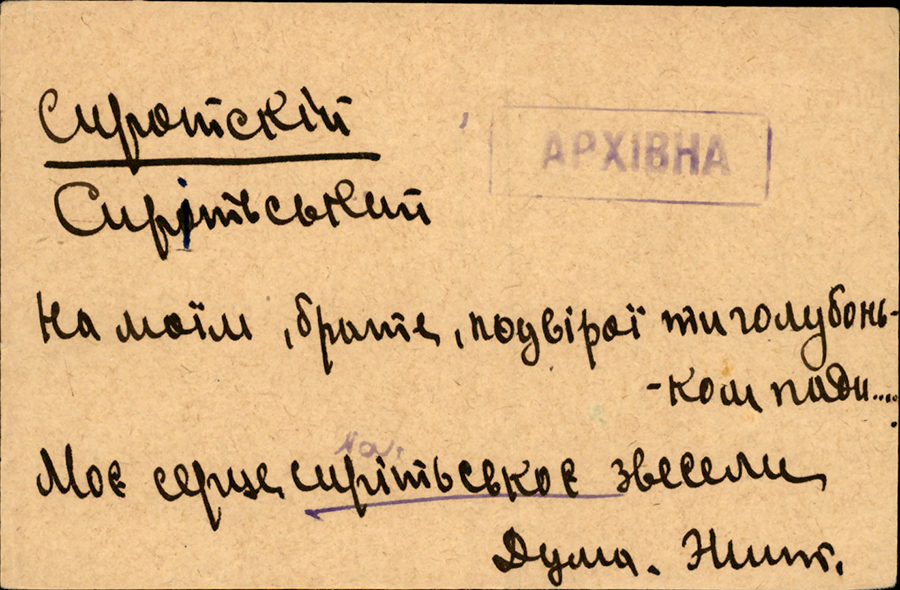 Сиротскій
АРХІВНА
Сирітський
На моїм, брате, подвірої ти голубонь-
-ком пади....
Моє серце сирітськоє звесели
Дума. Жит.